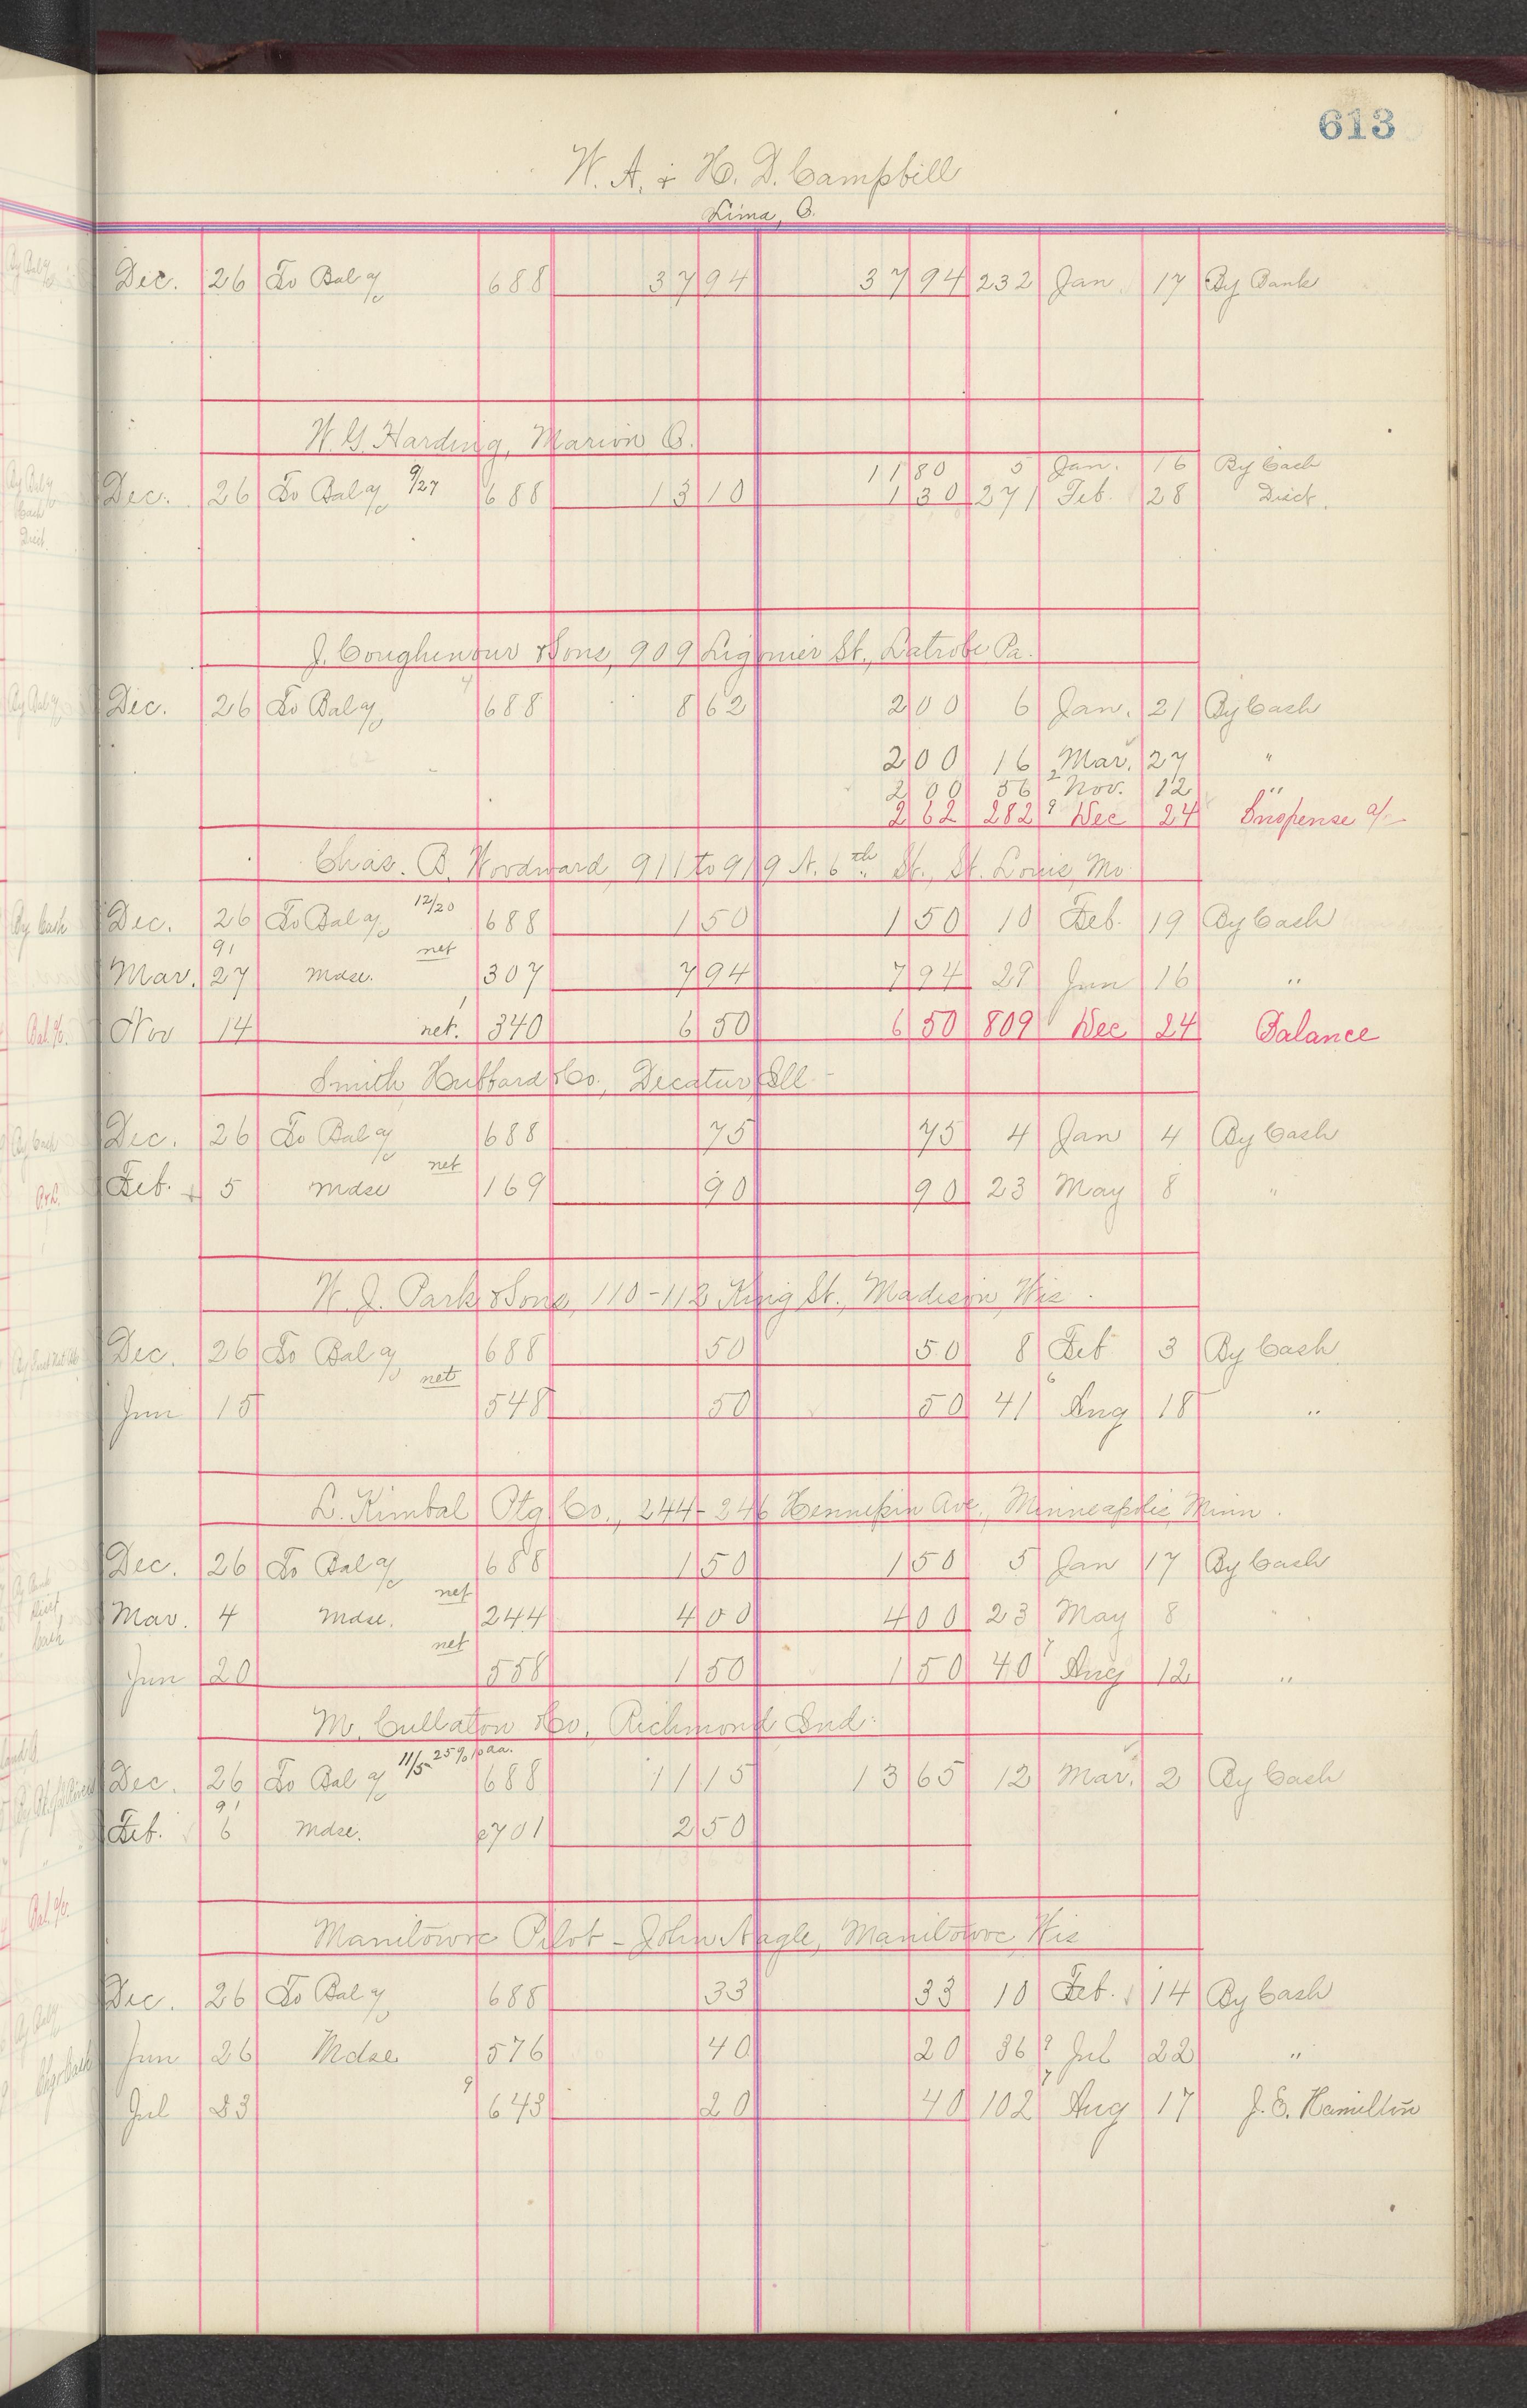 613
W. A. & H. D. Campbell
Lima, O.
Dec. 26 To Bal a/c 688 37 94 37 94 232 Jan. 17 By Bank
W. G. Harding, Marion O.
11 80 5 Jan. 16 By Cash
Dec. 26 To Bal a/c 9/27 688 13 10 1 30 271 Feb. 28 Disct.
J. Coughenour & Sons, 909 Ligonier St., Latrobe Pa.
Dec. 26 To Bal a/c 4 688 8 62 2 00 6 Jan. 21 By Cash
2 00 16 Mar. 27 "
2 00 56 2 Nov. 12 "
2 62 282 9 Dec 24 Suspense a/c
Chas. B. Woodward, 911 to 919 N. 6th St., St. Louis, Mo
Dec. 26 To Bal a/c 12/20 688 1 50 1 50 10 Feb. 19 By Cash
91 net
Mar. 27 Mdse. 307 7 94 7 94 29 Jun 16 "
Nov 14 net. 340 6 50 6 50 809 Dec 24 Balance
Smith Hubbard & Co., Decatur, Ill
Dec. 26 To Bal a/c 688 75 75 4 Jan 4 By Cash
net
Feb. 5 Mdse 169 90 90 23 May 8 "
W. J. Park & Sons, 110-112 King St., Madison, Wis.
Dec. 26 To Bal a/c 688 50 50 8 Feb 3 By Cash
net
Jun 15 548 50 50 41 6 Aug 18 "
L. Kimbal Ptg Co., 244-246 Hennepin Ave., Minneapolis, Minn.
Dec. 26 To Bal a/c 688 1 50 1 50 5 Jan 17 By Cash
net
Mar. 4 Mdse. 244 4 00 4 00 23 May 8 "
net
Jun 20 558 1 50 1 50 40 7 Aug 12 "
M. Cullaton & Co, Richmond Ind.
11/5 25% 10 aa.
Dec. 26 To Bal a/c 688 11 15 13 65 12 Mar. 2 By Cash
91
Feb. 6 Mdse. 701 2 50
Manitowoc Pilot - John Nagle, Manitowoc, Wis
Dec. 26 To Bal a/c 688 33 33 10 Feb. 14 By Cash
Jun 26 Mdse 576 40 20 36 9 Jul 22 "
Jul 23 9 643 20 40 102 7 Aug 17 J. E. Hamilton